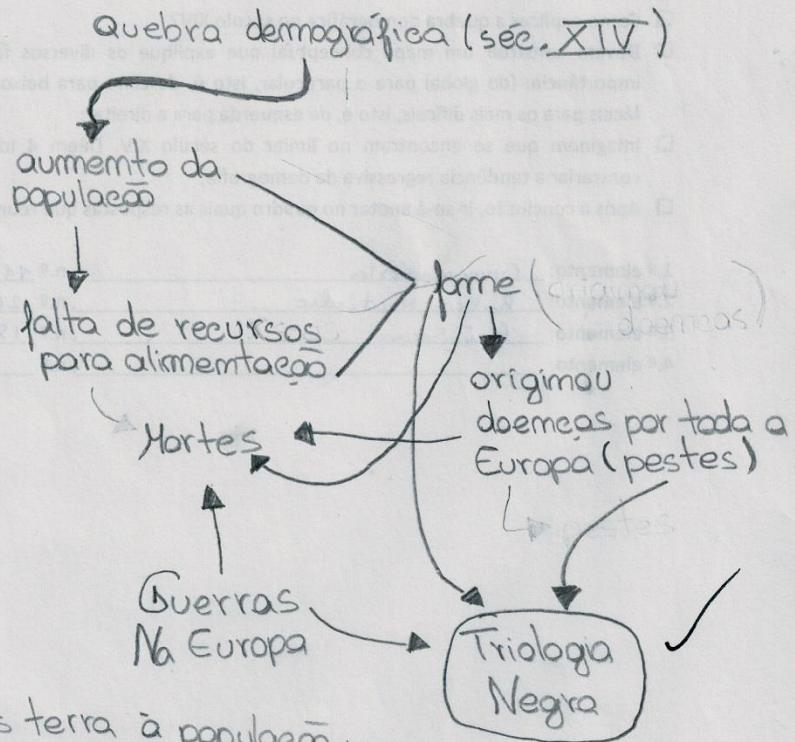 Quebra demográfica (séc. XIV)
aumento da
população
falta de recursos
para alimentação
fome (originou
doenças)
originou
doenças por toda a
Europa (pestes)
Mortes
Guerras
Na Europa
Triologia
Negra
s terra à população.